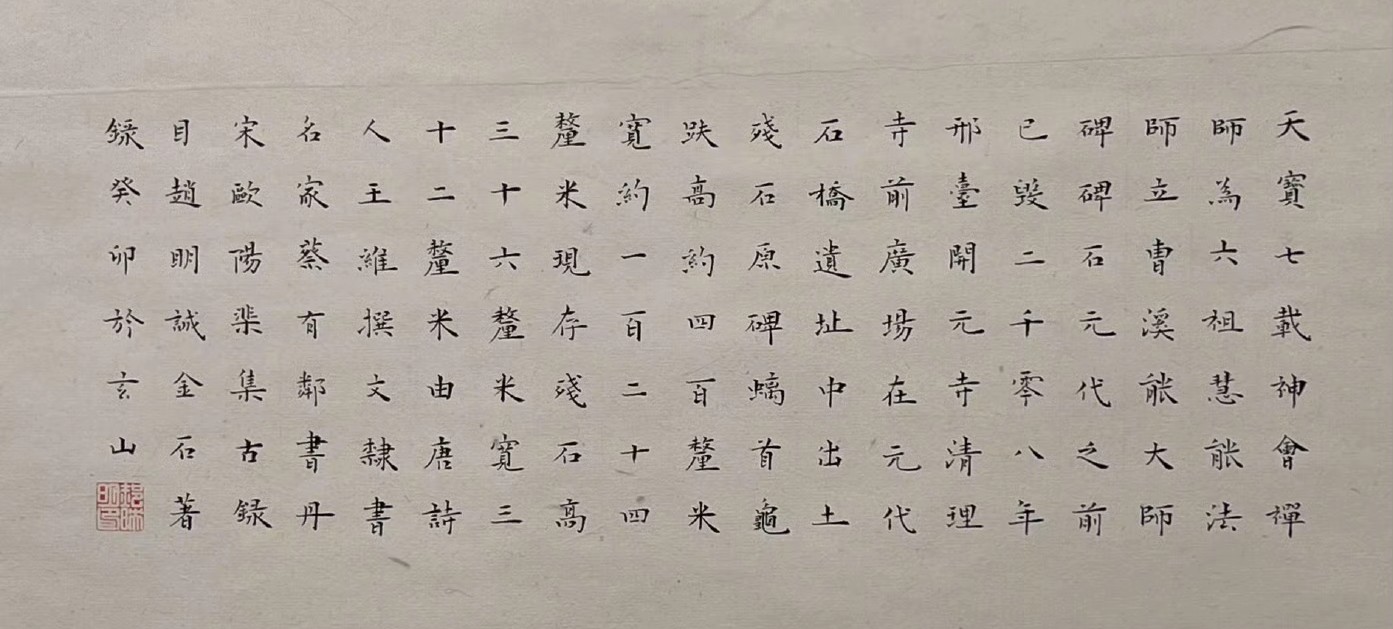 天寶七載神會禪
師為六祖慧能法
師立曹溪能大師
碑碑石元代之前
已毀二千零八年
邢臺開元寺清理
寺前廣場在元代
石橋遺址中出土
殘石原碑螭首龜
趺高約四百釐米
寬約一百二十四
釐米現存殘石高
三十六釐米寬三
十二釐米由唐詩
人王維撰文隸書
名家蔡有鄰書丹
宋歐陽棐集古録
目趙明誠金石著
録癸卯於玄山